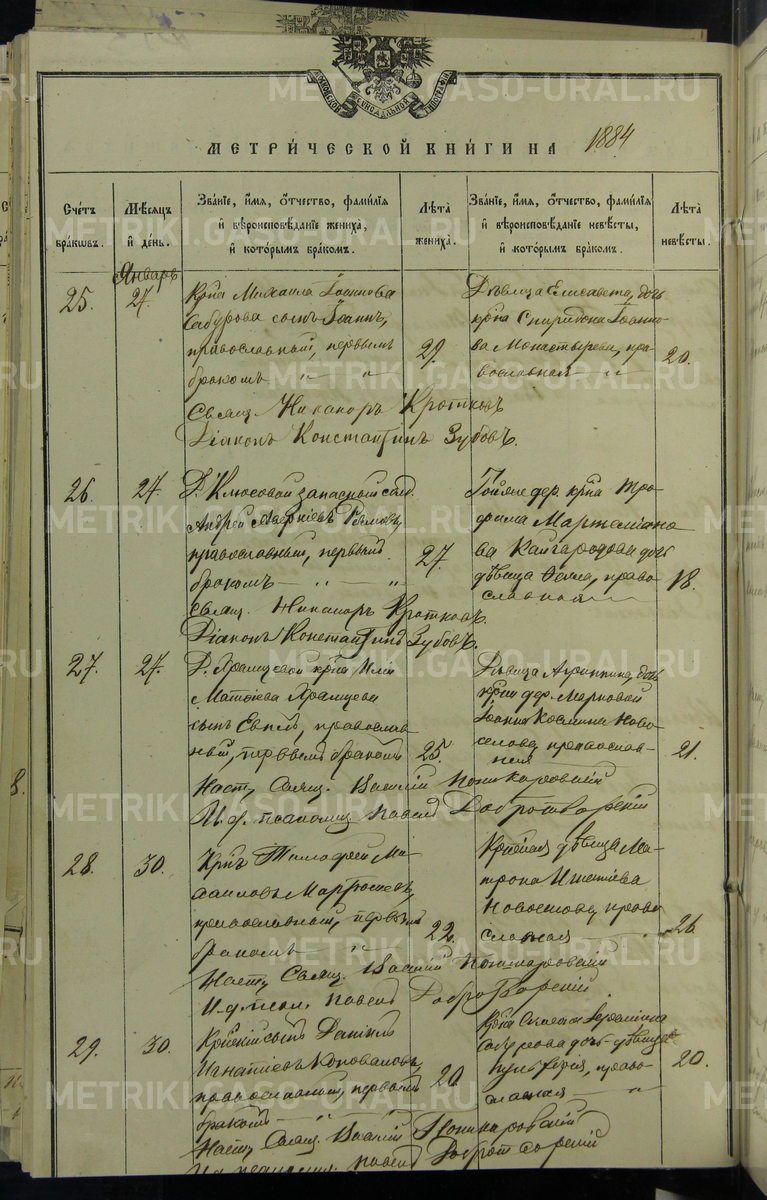 МОСКОВСКОЙ СѴНОДАЛЬНОЙ ТИПОГРАФІИ
МЕТРИ́ЧЕСКОЙ КНИ́ГИ НА 1884
Сче́тъ бра́кωвъ.
Мѣ́сяцъ и҆ де́нь.
Зва́нїе, и҆́мя, ѻ҆́тчество, фами́лїя
и҆ вѣроисповѣ́данїе жениха̀,
и҆ кото́рымъ бра́комъ.
Лѣ́та жениха̀.
Зва́нїе, и҆́мя, ѻ҆́тчество, фами́лїя
и҆ вѣроисповѣ́данїе невѣ́сты,
и҆ кото́рымъ бра́комъ.
Лѣ́та невѣ́сты.
Январь
25. 27.
Крн̃а Михаила Іоаннова
Сабурова сынъ Іоаннъ,
православный, первымъ
бракомъ — " — "
29.
Дѣвица Елисавета, дочь
крн̃а Спиридона Іоанно-
ва Монастырева, пра-
вославная — "
20.
Свящ. Никаноръ Кротковъ
Діаконъ Константинъ Зубовъ.
26. 27.
Д. Клюсовой запасный солд.
Андрей
православный, первымъ
бракомъ — " — "
27.
дер. крн̃а Тро-
фима Мартеміано-
ва Кайгародова дочь
дѣвица Ѳекла, право-
славная
18.
Свящ. Никаноръ Кротковъ.
Діаконъ Константинъ Зубовъ.
27. 27.
Д. Храмцовой крн̃а Иліи
Матѳіева Храмцова
сынъ Евплъ, православ-
ный, первымъ бракомъ
25.
Дѣвица Агриппина, дочь
крн̃а дер. Марковой
Іоанна Космина Ново-
селова, православ-
ная
21.
Наст. Свящ. Василій Пономаровскій
И. д. псаломщ. Павелъ Добротворскій
28. 30.
Крн̃ъ Тимоѳей
Мартюшевъ,
православный, первымъ
бракомъ "
22.
дѣвица Ма-
трона Игнатіева
право-
славная
26.
Наст. Свящ. Василій Пономаровскій
И. д. псал. Павелъ Добротворскій
29. 30.
сынъ Даніилъ
Игнатіевъ Коноваловъ,
православный, первымъ
бракомъ — " — "
20.
крн̃а
Сабурова дочь дѣвица
Пульхерія, право-
славная — "
20.
Наст. Свящ. Василій Пономаровскій
И. д. псаломщ. Павелъ Добротворскій
METRIKI.GASO-URAL.RU